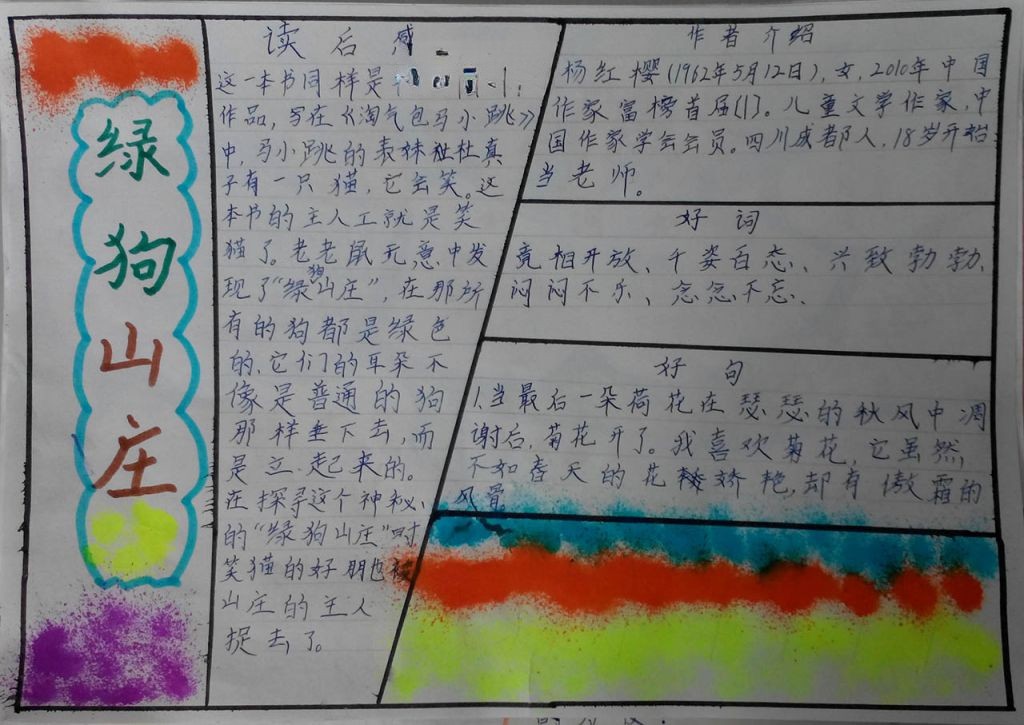 绿狗山庄
读后感
这一本书同样是
作品，写在《淘气包马小跳》
中，马小跳的表妹杜真
子有一只猫，它会笑。这
本书的主人工就是笑
猫了。老老鼠无意中发
现了“绿狗山庄”，在那所
有的狗都是绿色
的，它们的耳朵不
像是普通的狗
那样垂下去，而
是立起来的。
在探寻这个神秘
的“绿狗山庄”时
笑猫的好朋也被
山庄的主人
捉去了。
作者介绍
杨红樱(1962年5月12日)，女，2010年中国
作家富榜首届(1)。儿童文学作家，中
国作家学会会员。四川成都人，18岁开始
当老师。
好词
竞相开放、千姿百态、兴致勃勃、
闷闷不乐、念念不忘、
好句
1.当最后一朵荷花在瑟瑟的秋风中凋
谢后，菊花开了。我喜欢菊花，它虽然
不如春天的花娇艳，却有傲霜的
风骨